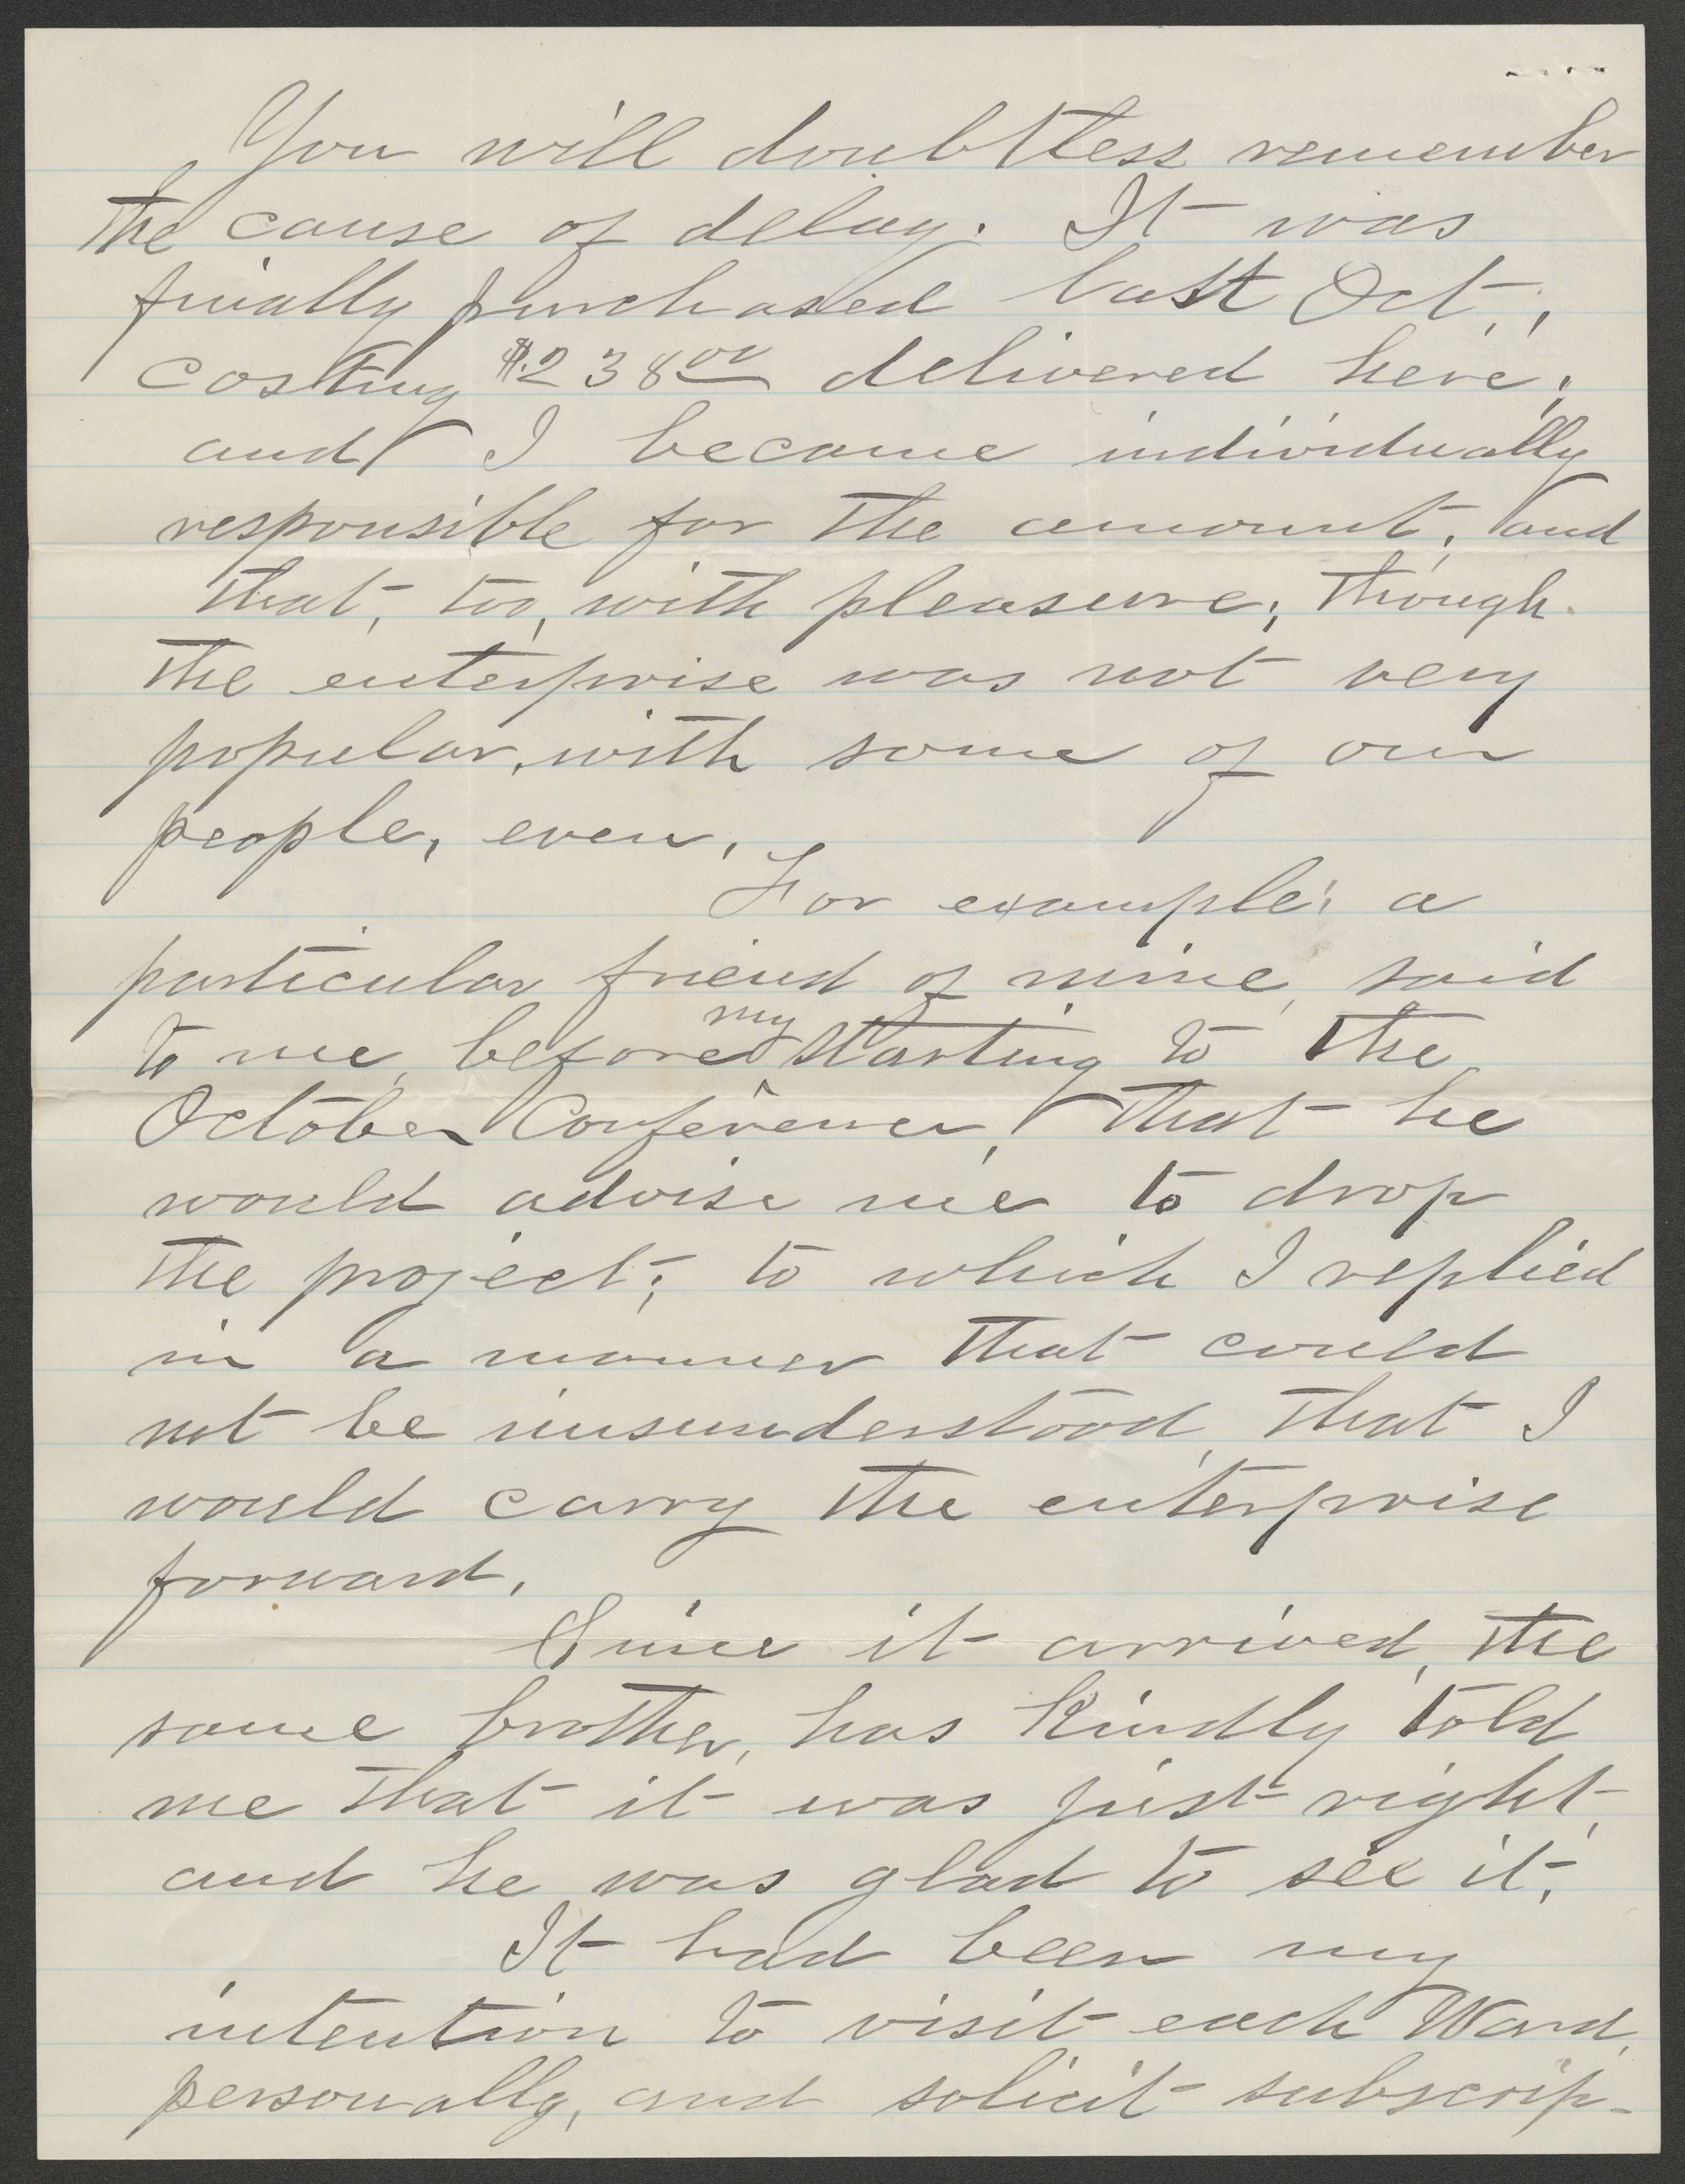 You will doubtless remember
the cause of delay. It was
finally purchased last Oct.,
costing $238 00 delivered here;
and I became individually
responsible for the amount, and
that, too, with pleasure; though
the enterprise was not very
popular, with some of our
people, even.
For example: a
particular friend of mine, said
to me, before my starting to the
October Conference, that he
would advise me to drop
the project; to which I replied
in a manner that could
not be misunderstood, that I
would carry the enterprise
forward.
Since it arrived, the
same brother, has kindly told
me that it was just right,
and he was glad to see it.
It had been my
intention to visit each Ward,
personally, and solicit subscrip-